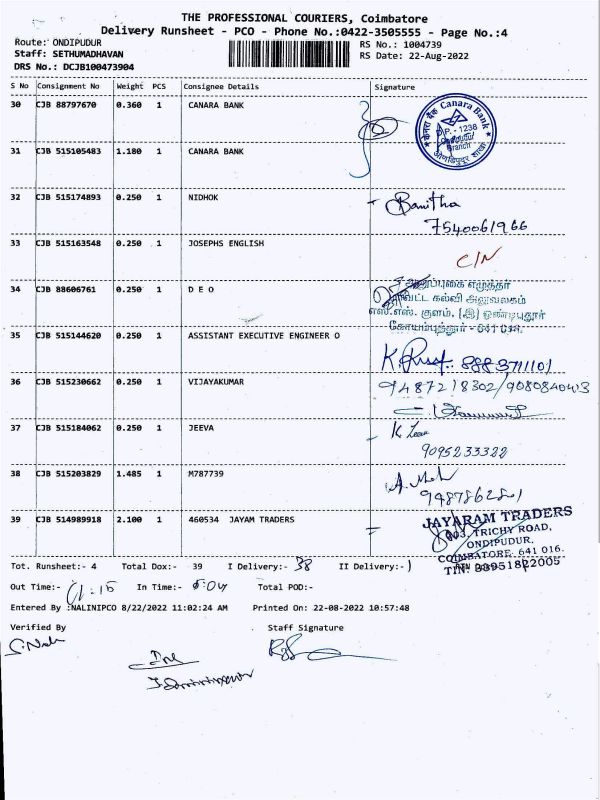 THE PROFESSIONAL COURIERS, Coimbatore
Delivery Runsheet - PCO - Phone No.:0422-3505555 - Page No.:4
Route: ONDIPUDUR RS No.: 1004739
Staff: SETHUMADHAVAN RS Date: 22-Aug-2022
DRS No.: DCJB100473904
S No Consignment No Weight PCS Consignee Details Signature
30 CJB 88797670 0.360 1 CANARA BANK
केनरा बैंक Canara Bank
D.P. - 1236
Branch
31 CJB 515105483 1.180 1 CANARA BANK
32 CJB 515174893 0.250 1 NIDHOK
7540061966
33 CJB 515163548 0.250 1 JOSEPHS ENGLISH
C/N
34 CJB 88606761 0.250 1 D E O
எஸ்.எஸ். குளம், (இ) ஒண்டிபுதூர்
கோயம்புத்தூர் - 641 014.
35 CJB 515144620 0.250 1 ASSISTANT EXECUTIVE ENGINEER O
8883711101
36 CJB 515230662 0.250 1 VIJAYAKUMAR
9487218302/9080840413
37 CJB 515184062 0.250 1 JEEVA
9095233322
38 CJB 515203829 1.485 1 M787739
39 CJB 514989918 2.100 1 460534 JAYAM TRADERS
JAYARAM TRADERS
TRICHY ROAD,
ONDIPUDUR.
COIMBATORE- 641 016.
Tot. Runsheet:- 4 Total Dox:- 39 I Delivery:- 38 II Delivery:- 1
Out Time:- 11:15 In Time:- Total POD:-
Entered By :NALINIPCO 8/22/2022 11:02:24 AM Printed On: 22-08-2022 10:57:48
Verified By Staff Signature